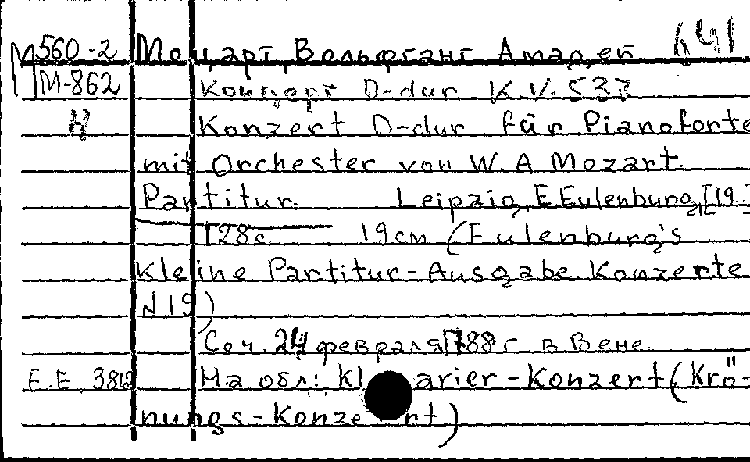 М560-2 Моцарт, Вольфганг Амадей
М-862 Концерт D-dur K.V. 537
Н Konzert D-dur für Pianoforte
mit Orchester von W. A Mozart.
Partitur. Leipzig, E. Eulenburg, [19.
128 с. 19 см (Eulenburg's
kleine Partitur-Ausgabe. Konzerte
N 19)
Соч. 24 февраля 1788 г. в Вене.
E.E. На обл.: Kl arier-Konzert (Krö-
nungs-Konze rt)